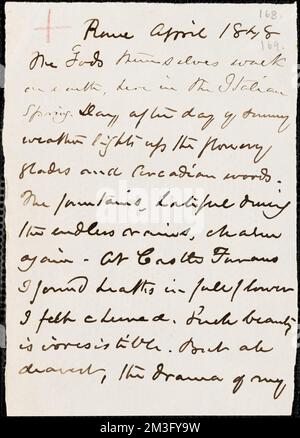 168.
Rome April 1848
169.
The Gods themselves walk
on earth, here in the Italian
Spring. Day after day of sunny
weather lights up the flowery
glades and Arcadian woods.
The fountains, hateful during
the endless rains, charm
again. At Castle Fusano
I found heaths in full flower
I felt cheered. Such beauty
is irresistible. But ah
dearest, the drama of my
alamy
Image ID: 2M3FY9W
www.alamy.com